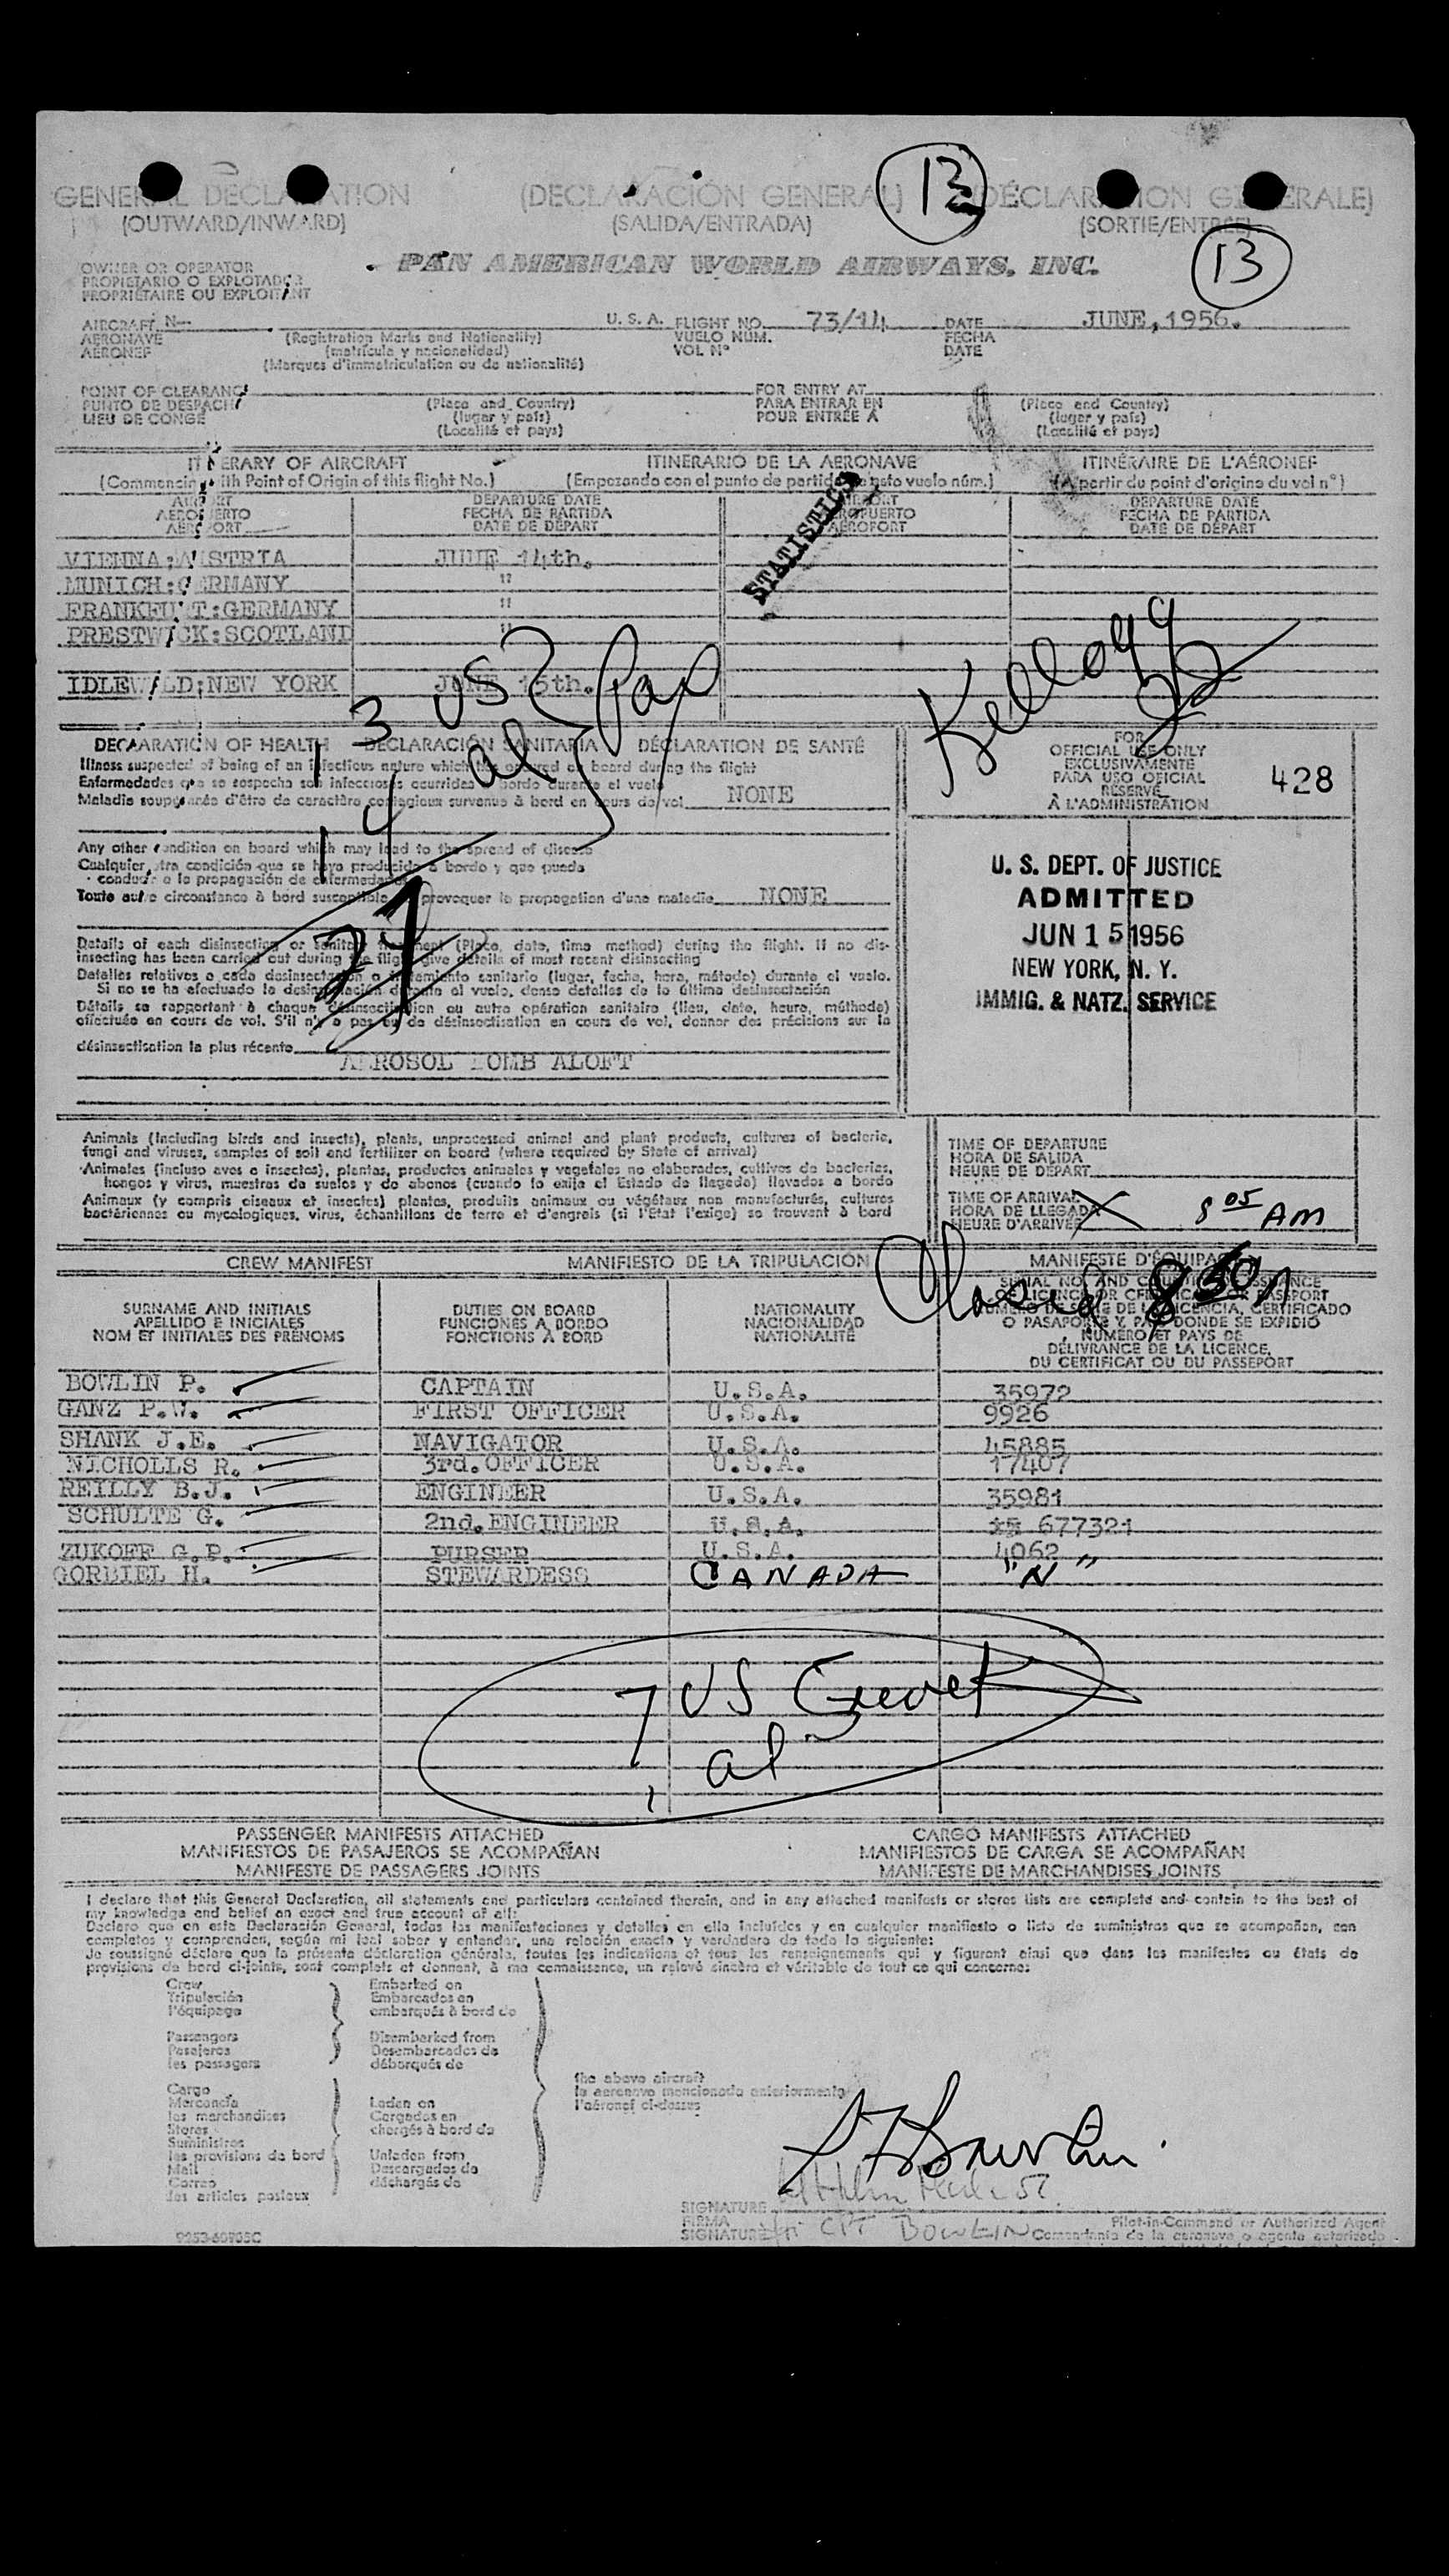 13
GENERAL DECLARATION (DECLARACIÓN GENERAL) (DÉCLARATION GÉNÉRALE)
(OUTWARD/INWARD) (SALIDA/ENTRADA) (SORTIE/ENTRÉE)
13
OWNER OR OPERATOR
PROPIETARIO O EXPLOTADOR
PROPRIÉTAIRE OU EXPLOITANT
PAN AMERICAN WORLD AIRWAYS, INC.
AIRCRAFT N— U. S. A. FLIGHT NO. 73/14 DATE JUNE, 1956.
AERONAVE (Registration Marks and Nationality) VUELO NÚM. FECHA
AÉRONEF (matrícula y nacionalidad) VOL Nº DATE
(Marques d'immatriculation ou de nationalité)
POINT OF CLEARANCE FOR ENTRY AT
PUNTO DE DESPACHO (Place and Country) PARA ENTRAR EN (Place and Country)
LIEU DE CONGÉ (lugar y país) POUR ENTRÉE À (lugar y país)
(Localité et pays) (Localité et pays)
ITINERARY OF AIRCRAFT ITINERARIO DE LA AERONAVE ITINÉRAIRE DE L'AÉRONEF
(Commencing with Point of Origin of this flight No.) (Empezando con el punto de partida de este vuelo núm.) (A partir du point d'origine du vol nº)
AIRPORT DEPARTURE DATE AIRPORT DEPARTURE DATE
AEROPUERTO FECHA DE PARTIDA AEROPUERTO FECHA DE PARTIDA
AÉROPORT DATE DE DÉPART AÉROPORT DATE DE DÉPART
STATISTICS
VIENNA:AUSTRIA JUNE 14th.
MUNICH:GERMANY "
FRANKFURT:GERMANY "
PRESTWICK:SCOTLAND "
IDLEWILD;NEW YORK JUNE 15th.
13 US
14 al } Pax
27
Kellogg
DECLARATION OF HEALTH DECLARACIÓN SANITARIA DÉCLARATION DE SANTÉ
Illness suspected of being of an infectious nature which has occurred on board during the flight
Enfermedades que se sospecha son infecciosas ocurridas a bordo durante el vuelo
Maladie soupçonnée d'être de caractère contagieux survenue à bord en cours de vol NONE
FOR
OFFICIAL USE ONLY
EXCLUSIVAMENTE
PARA USO OFICIAL
RÉSERVÉ
À L'ADMINISTRATION
428
Any other condition on board which may lead to the spread of disease
Cualquier otra condición que se haya producido a bordo y que pueda
conducir a la propagación de enfermedades
Toute autre circonstance à bord susceptible de provoquer la propagation d'une maladie NONE
U. S. DEPT. OF JUSTICE
ADMITTED
JUN 15 1956
NEW YORK, N. Y.
IMMIG. & NATZ. SERVICE
Details of each disinsecting or sanitary treatment (Place, date, time method) during the flight. If no dis-
insecting has been carried out during the flight give details of most recent disinsecting
Detalles relativos a cada desinsectación o tratamiento sanitario (lugar, fecha, hora, método) durante el vuelo.
Si no se ha efectuado la desinsectación durante el vuelo, dense detalles de la última desinsectación
Détails se rapportant à chaque désinsectisation ou autre opération sanitaire (lieu, date, heure, méthode)
effectuée en cours de vol. S'il n'y a pas eu de désinsectisation en cours de vol, donner des précisions sur la
désinsectisation la plus récente
AEROSOL BOMB ALOFT
Animals (including birds and insects), plants, unprocessed animal and plant products, cultures of bacteria,
fungi and viruses, samples of soil and fertilizer on board (where required by State of arrival)
Animales (incluso aves e insectos), plantas, productos animales y vegetales no elaborados, cultivos de bacterias,
hongos y virus, muestras de suelos y de abonos (cuando lo exija el Estado de llegada) llevados a bordo
Animaux (y compris oiseaux et insectes) plantes, produits animaux ou végétaux non manufacturés, cultures
bactériennes ou mycologiques, virus, échantillons de terre et d'engrais (si l'État l'exige) se trouvant à bord
TIME OF DEPARTURE
HORA DE SALIDA
HEURE DE DÉPART
TIME OF ARRIVAL
HORA DE LLEGADA
HEURE D'ARRIVÉE X 8 05 AM
CREW MANIFEST MANIFIESTO DE LA TRIPULACIÓN MANIFESTE D'ÉQUIPAGE
SURNAME AND INITIALS DUTIES ON BOARD NATIONALITY
APELLIDO E INICIALES FUNCIONES A BORDO NACIONALIDAD
NOM ET INITIALES DES PRÉNOMS FONCTIONS À BORD NATIONALITÉ
SERIAL NO. AND COUNTRY OF ISSUANCE
OF LICENCE OR CERTIFICATE OR PASSPORT
NÚMERO DE SERIE DE LA LICENCIA, CERTIFICADO
O PASAPORTE Y PAÍS DONDE SE EXPIDIÓ
NUMÉRO ET PAYS DE
DÉLIVRANCE DE LA LICENCE,
DU CERTIFICAT OU DU PASSEPORT
BOWLIN P. CAPTAIN U.S.A. 35972
GANZ P.W. FIRST OFFICER U.S.A. 9926
SHANK J.E. NAVIGATOR U.S.A. 45885
NICHOLLS R. 3rd.OFFICER U.S.A. 17407
REILLY B.J. ENGINEER U.S.A. 35981
SCHULTE G. 2nd.ENGINEER U.S.A. 677321
ZUKOFF G.P. PURSER U.S.A. 4062
GORBIEL H. STEWARDESS CANADA "N"
7 US Crew
1 al
PASSENGER MANIFESTS ATTACHED CARGO MANIFESTS ATTACHED
MANIFIESTOS DE PASAJEROS SE ACOMPAÑAN MANIFIESTOS DE CARGA SE ACOMPAÑAN
MANIFESTE DE PASSAGERS JOINTS MANIFESTE DE MARCHANDISES JOINTS
I declare that this General Declaration, all statements and particulars contained therein, and in any attached manifests or stores lists are complete and contain to the best of
my knowledge and belief an exact and true account of all:
Declaro que en esta Declaración General, todas las manifestaciones y detalles en ella incluídos y en cualquier manifiesto o lista de suministros que se acompañan, son
completos y comprenden, según mi leal saber y entender, una relación exacta y verdadera de todo lo siguiente:
Je soussigné déclare que la présente déclaration générale, toutes les indications et tous les renseignements qui y figurent ainsi que dans les manifestes ou états de
provisions de bord ci-joints, sont complets et donnent, à ma connaissance, un relevé sincère et véritable de tout ce qui concerne:
Crew Embarked on
Tripulación Embarcados en
l'équipage embarqués à bord de
Passengers Disembarked from
Pasajeros Desembarcados de
les passagers débarqués de
the above aircraft
la aeronave mencionada anteriormente
l'aéronef ci-dessus
Cargo
Mercancía Laden on
les marchandises Cargados en
Stores chargés à bord de
Suministros
les provisions de bord Unladen from
Mail Descargados de
Correo déchargés de
les articles postaux
Bowlin
SIGNATURE
FIRMA Pilot-in-Command or Authorized Agent
SIGNATURE CPT BOWLIN Comandante de la aeronave o agente autorizado